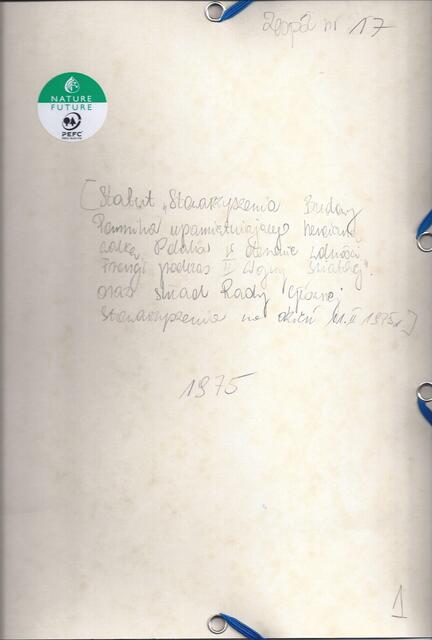 Zespół nr 17
NATURE
FUTURE
PEFC
[Statut „Stowarzyszenia Budowy
Pomnika upamiętniającego heroiczną
walkę Polaków w obronie wolności
Francji podczas II Wojny Światowej".
oraz skład Rady Głównej
Stowarzyszenia na dzień 1. II 1975 r.]
1975
1